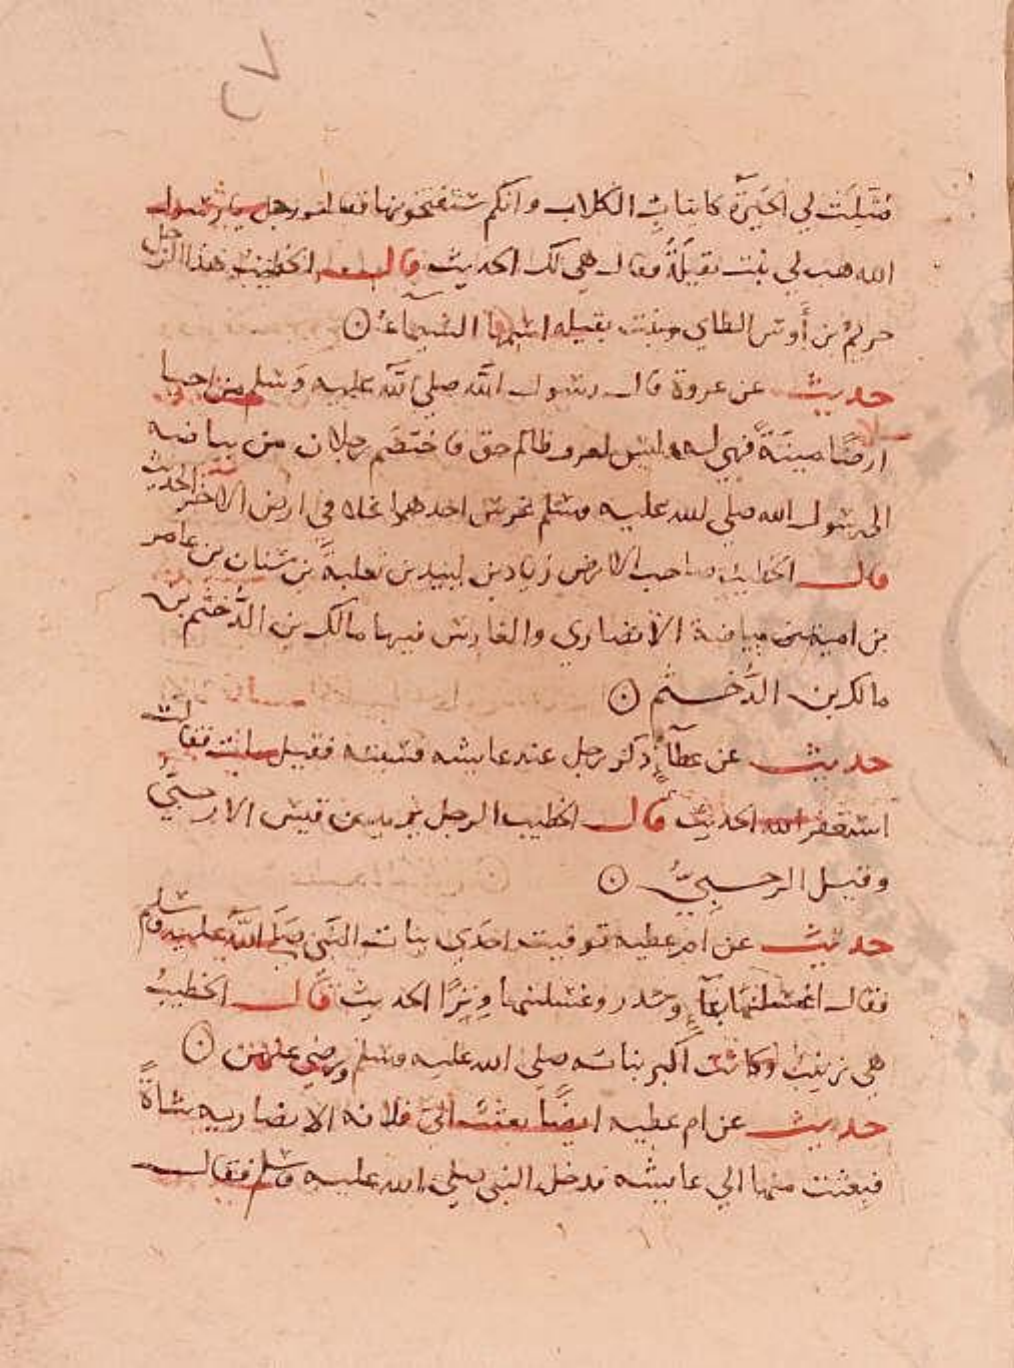 مُثِّلَت لي الحيرة كانياب الكلاب وانكم ستفتحونها فقام رجل يا رسول
الله هب لي بنت بقيلة فقال هي لك الحديث قال الخطيب هذا الرجل
خريم بن أوس الطاي وبنت بقيله اسمها الشيماء
حديث عن عروة قال رسول الله صلى الله عليه وسلم من احيا
ارضًا ميتةً فهي له وليس لعرق ظالم حق فاختصم رجلان من بياضه
الى رسول الله صلي لله عليه وسلم غرس احدهما نخلا في ارض الاخر الحديث
قال الخطيب صاحب الارض زياد بن لبيد بن ثعلبة بن سنان بن عامر
بن امية بن بياضة الأنصاري والغارس فيها مالك بن الدُّخشم بن
مالك بن الدُّخشم
حديث عن عطآء ذكر رجل عند عايشه فسبته فقيل مات فقالت
استغفر الله الحديث قال الخطيب الرجل يزيد بن قيس الارحبي
وقيل الرحبيّ
حديث عن ام عطيه توفيت احدي بنات النبي صلى الله عليه وسلم
فقال اغسلنها بمآء وسدر وغسلنها وترًا الحديث قال الخطيب
هي زينب وكانت أكبر بناته صلى الله عليه وسلم ورضي عنهن
حديث عن ام عطيه ايضًا بعثت الى فلانه الانصاريه بشاةً
فبعثت منها الي عايشه فدخل النبي صلى الله عليه وسلم فقال